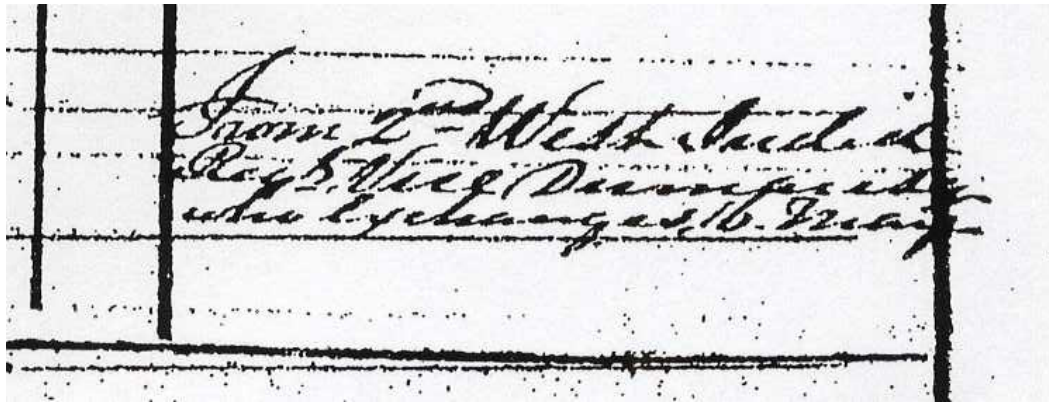 From 2nd West India
Regt. Vice
who Exchanges, 16. May